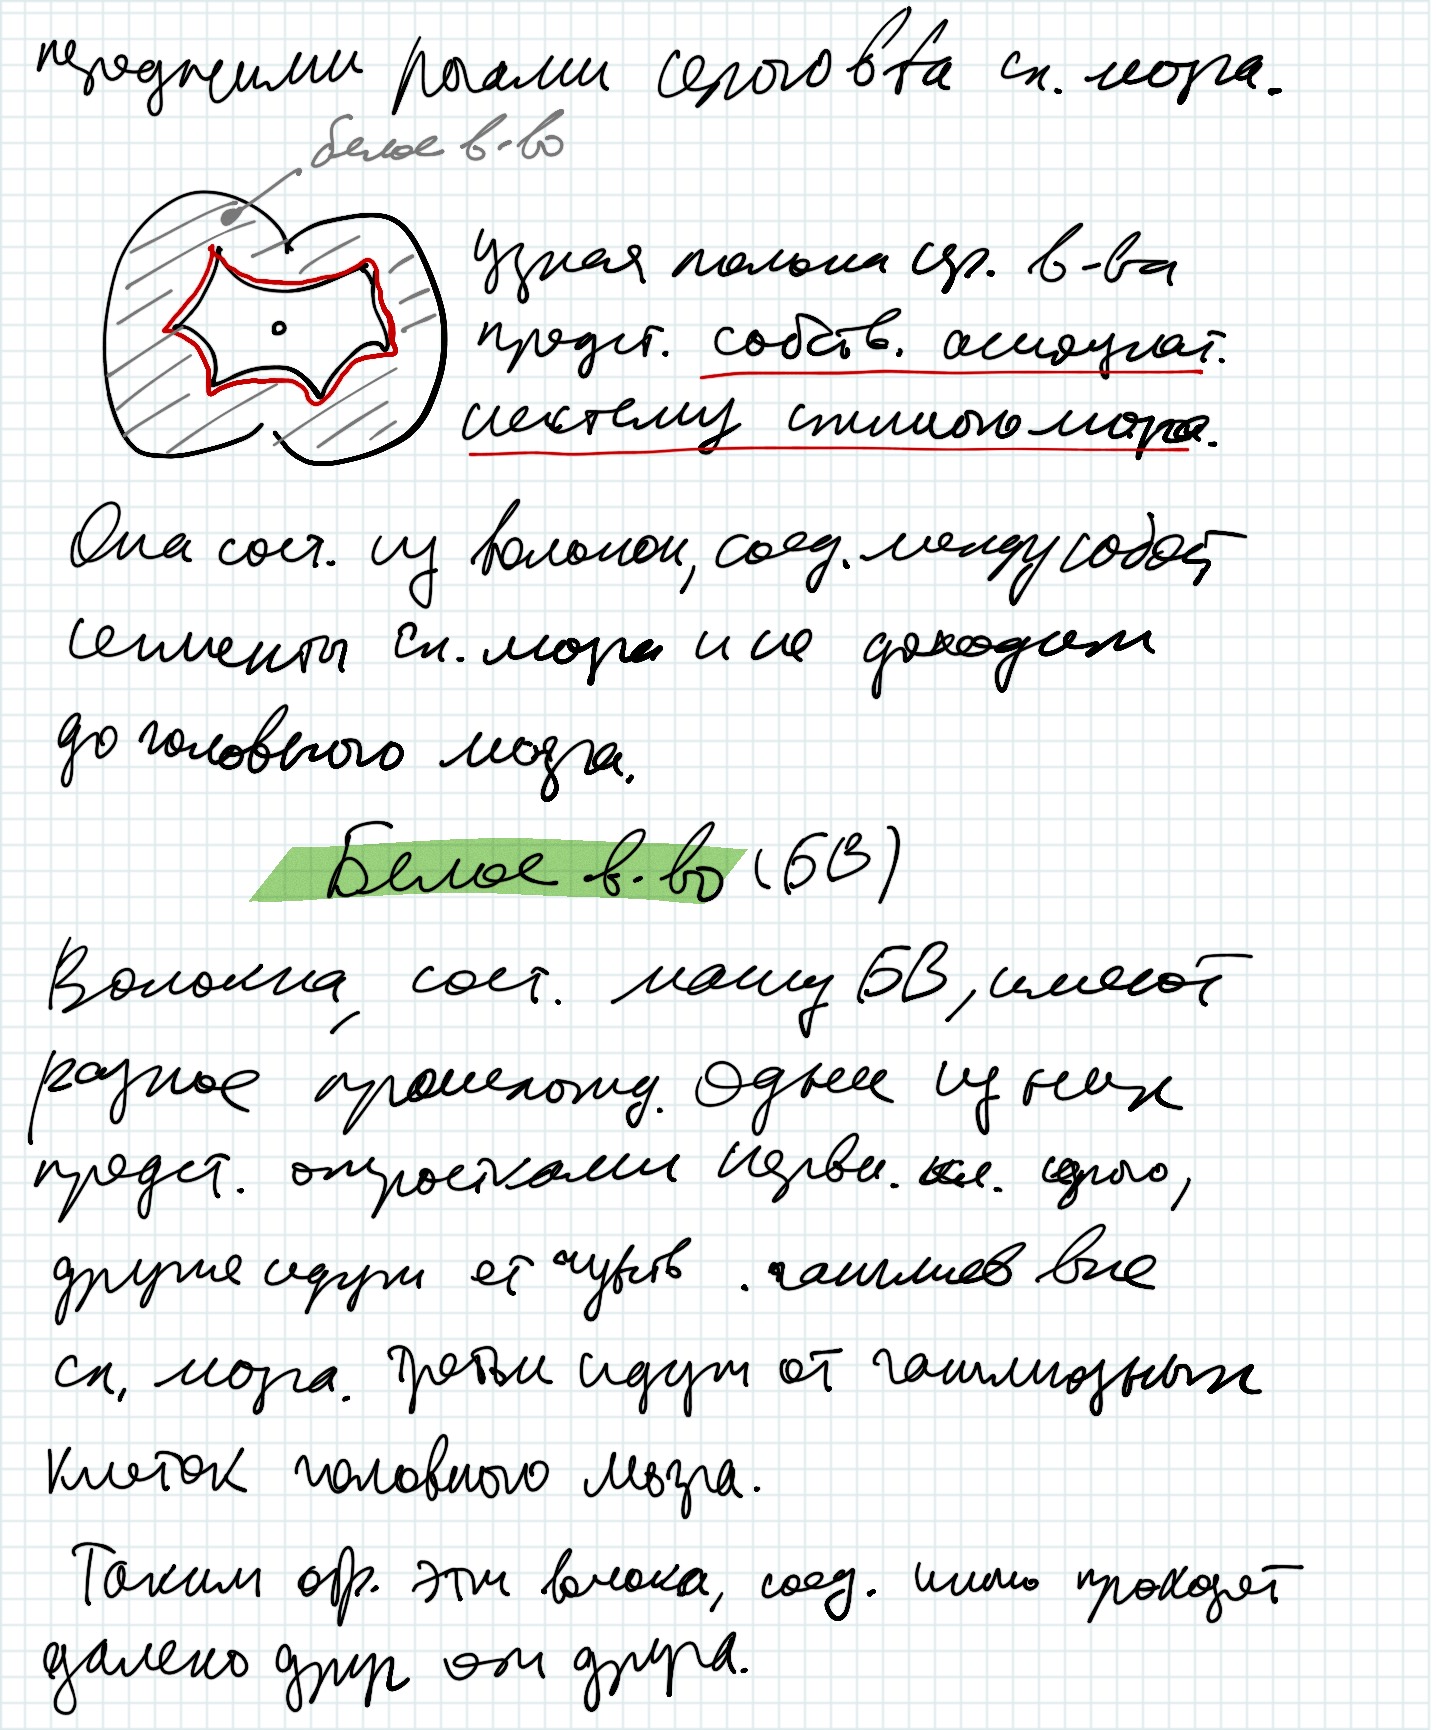 передними рогами серого в-ва сп. мозга.
белое в-во
Узкая полоска сер. в-ва
предст. собств. ассоциат.
систему спинного мозга.
Она сост. из волокон, соед. между собой
сегменты сп. мозга и не доходит
до головного мозга.
Белое в-во (БВ)
Волокна, сост. массу БВ, имеют
разное происхожд. Одни из них
предст. отростками нервн. кл. серого,
другие идут от чувств. ганглиев вне
сп. мозга. Третьи идут от ганглиозных
клеток головного мозга.
Таким обр. эти волокна, соед. проходят
далеко друг от друга.